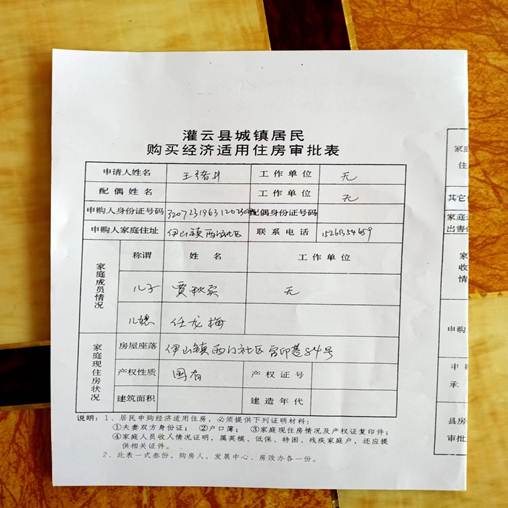 灌云县城镇居民
购买经济适用住房审批表
申请人姓名 工作单位 无
配偶姓名 工作单位 无
申购人身份证号码 配偶身份证号码
申购人家庭住址 伊山镇西门社区 联系电话
家庭成员情况 称谓 姓名 工作单位
儿子 无
儿媳 任龙梅
家庭现住房状况 房屋座落 伊山镇西门社区 54号
产权性质 国有 产权证号
建筑面积 建造年代
说明:1、居民申购经济适用住房,必须提供下列证明材料:
①夫妻双方身份证; ②户口簿; ③家庭现住房情况及产权证复印件;
④家庭人员收入情况证明,属英模、低保、特困、残疾家庭户,还应提
供相关证件。
2、此表一式叁份,购房人、发展中心、房改办各一份。
家庭
住
其它
家庭
出售
家庭
收
情
申购
申
承
县房
审批